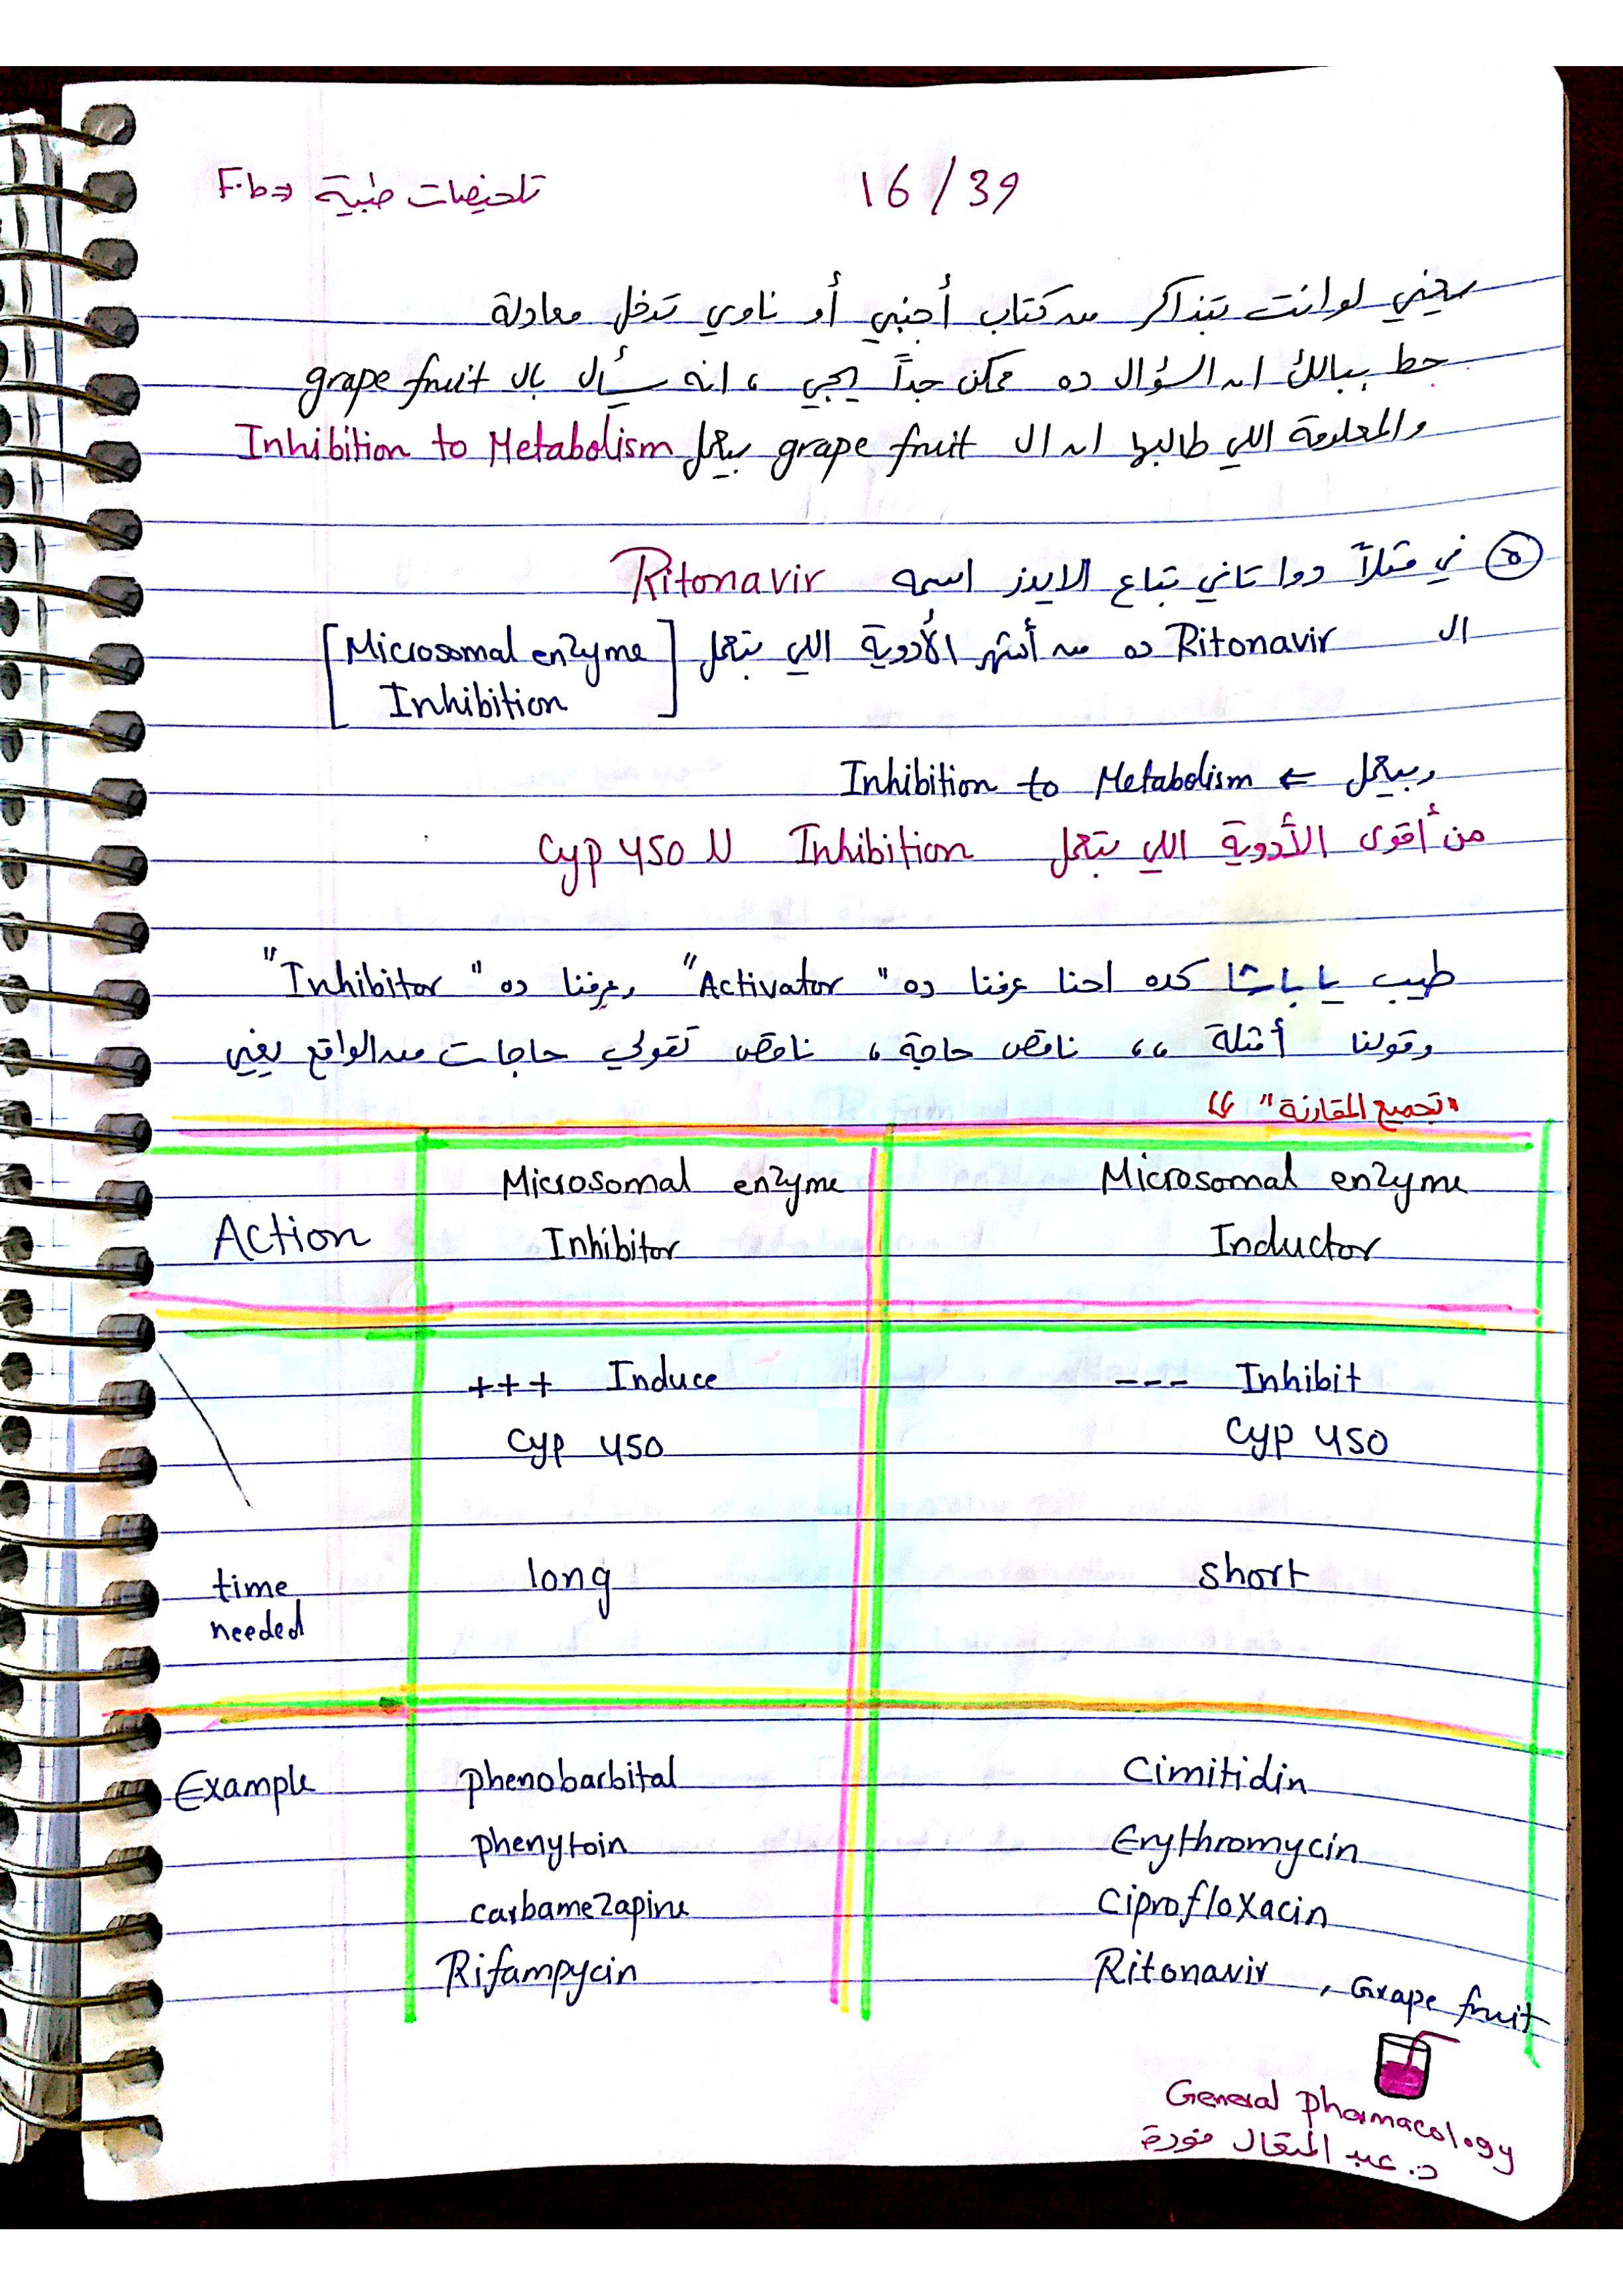 تلخيصات طبية <= F.b
16/39
يعني لو انت بتذاكر من كتاب أجنبي أو ناوي تدخل معادلة
حط ببالك ان السؤال ده ممكن جداً يجي ، انه يسأل بال grape fruit
والمعلومة اللي طالبها ان ال grape fruit بيعمل Inhibition to Metabolism
٥ في مثلاً دوا تاني بتاع الايدز اسمه Ritonavir
ال Ritonavir ده من أشهر الأدوية اللي بتعمل [Microsomal enzyme
Inhibition]
وبيعمل ← Inhibition to Metabolism
من أقوى الأدوية اللي بتعمل Inhibition لل Cyp 450
طيب يا باشا كده احنا عرفنا ده "Activator" وعرفنا ده "Inhibitor"
وقولنا أمثلة ،، ناقص حاجة ، ناقص تقولي حاجات من الواقع يعني
"تجميع المقارنة" ،،
Action
Microsomal enzyme
Inhibitor
Microsomal enzyme
Inductor
+++ Induce
Cyp 450
--- Inhibit
Cyp 450
time
needed
long
short
Example
phenobarbital
Cimitidin
phenytoin
Erythromycin
carbamezapine
Ciprofloxacin
Rifampycin
Ritonavir , Grape fruit
General pharmacology
د. عبد المتعال فودة